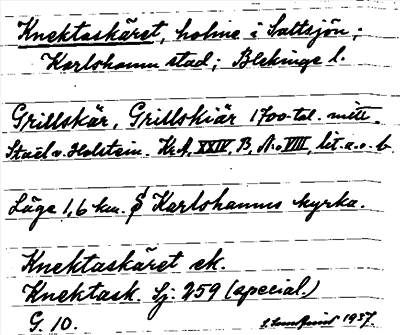 Knektaskäret, holme i Saltsjön;
Karlshamn stad; Blekinge l.
Grillskär, Grillskiär 1700-tal. mitt.
Staël v. Holstein. Kr.A, XXIV, B, N:o VIII, lit. a. o. b.
Läge 1,6 km. S Karlshamns kyrka.
Knektaskäret ek.
Knektask. Sj. 259 (special.)
G. 10. 1937.